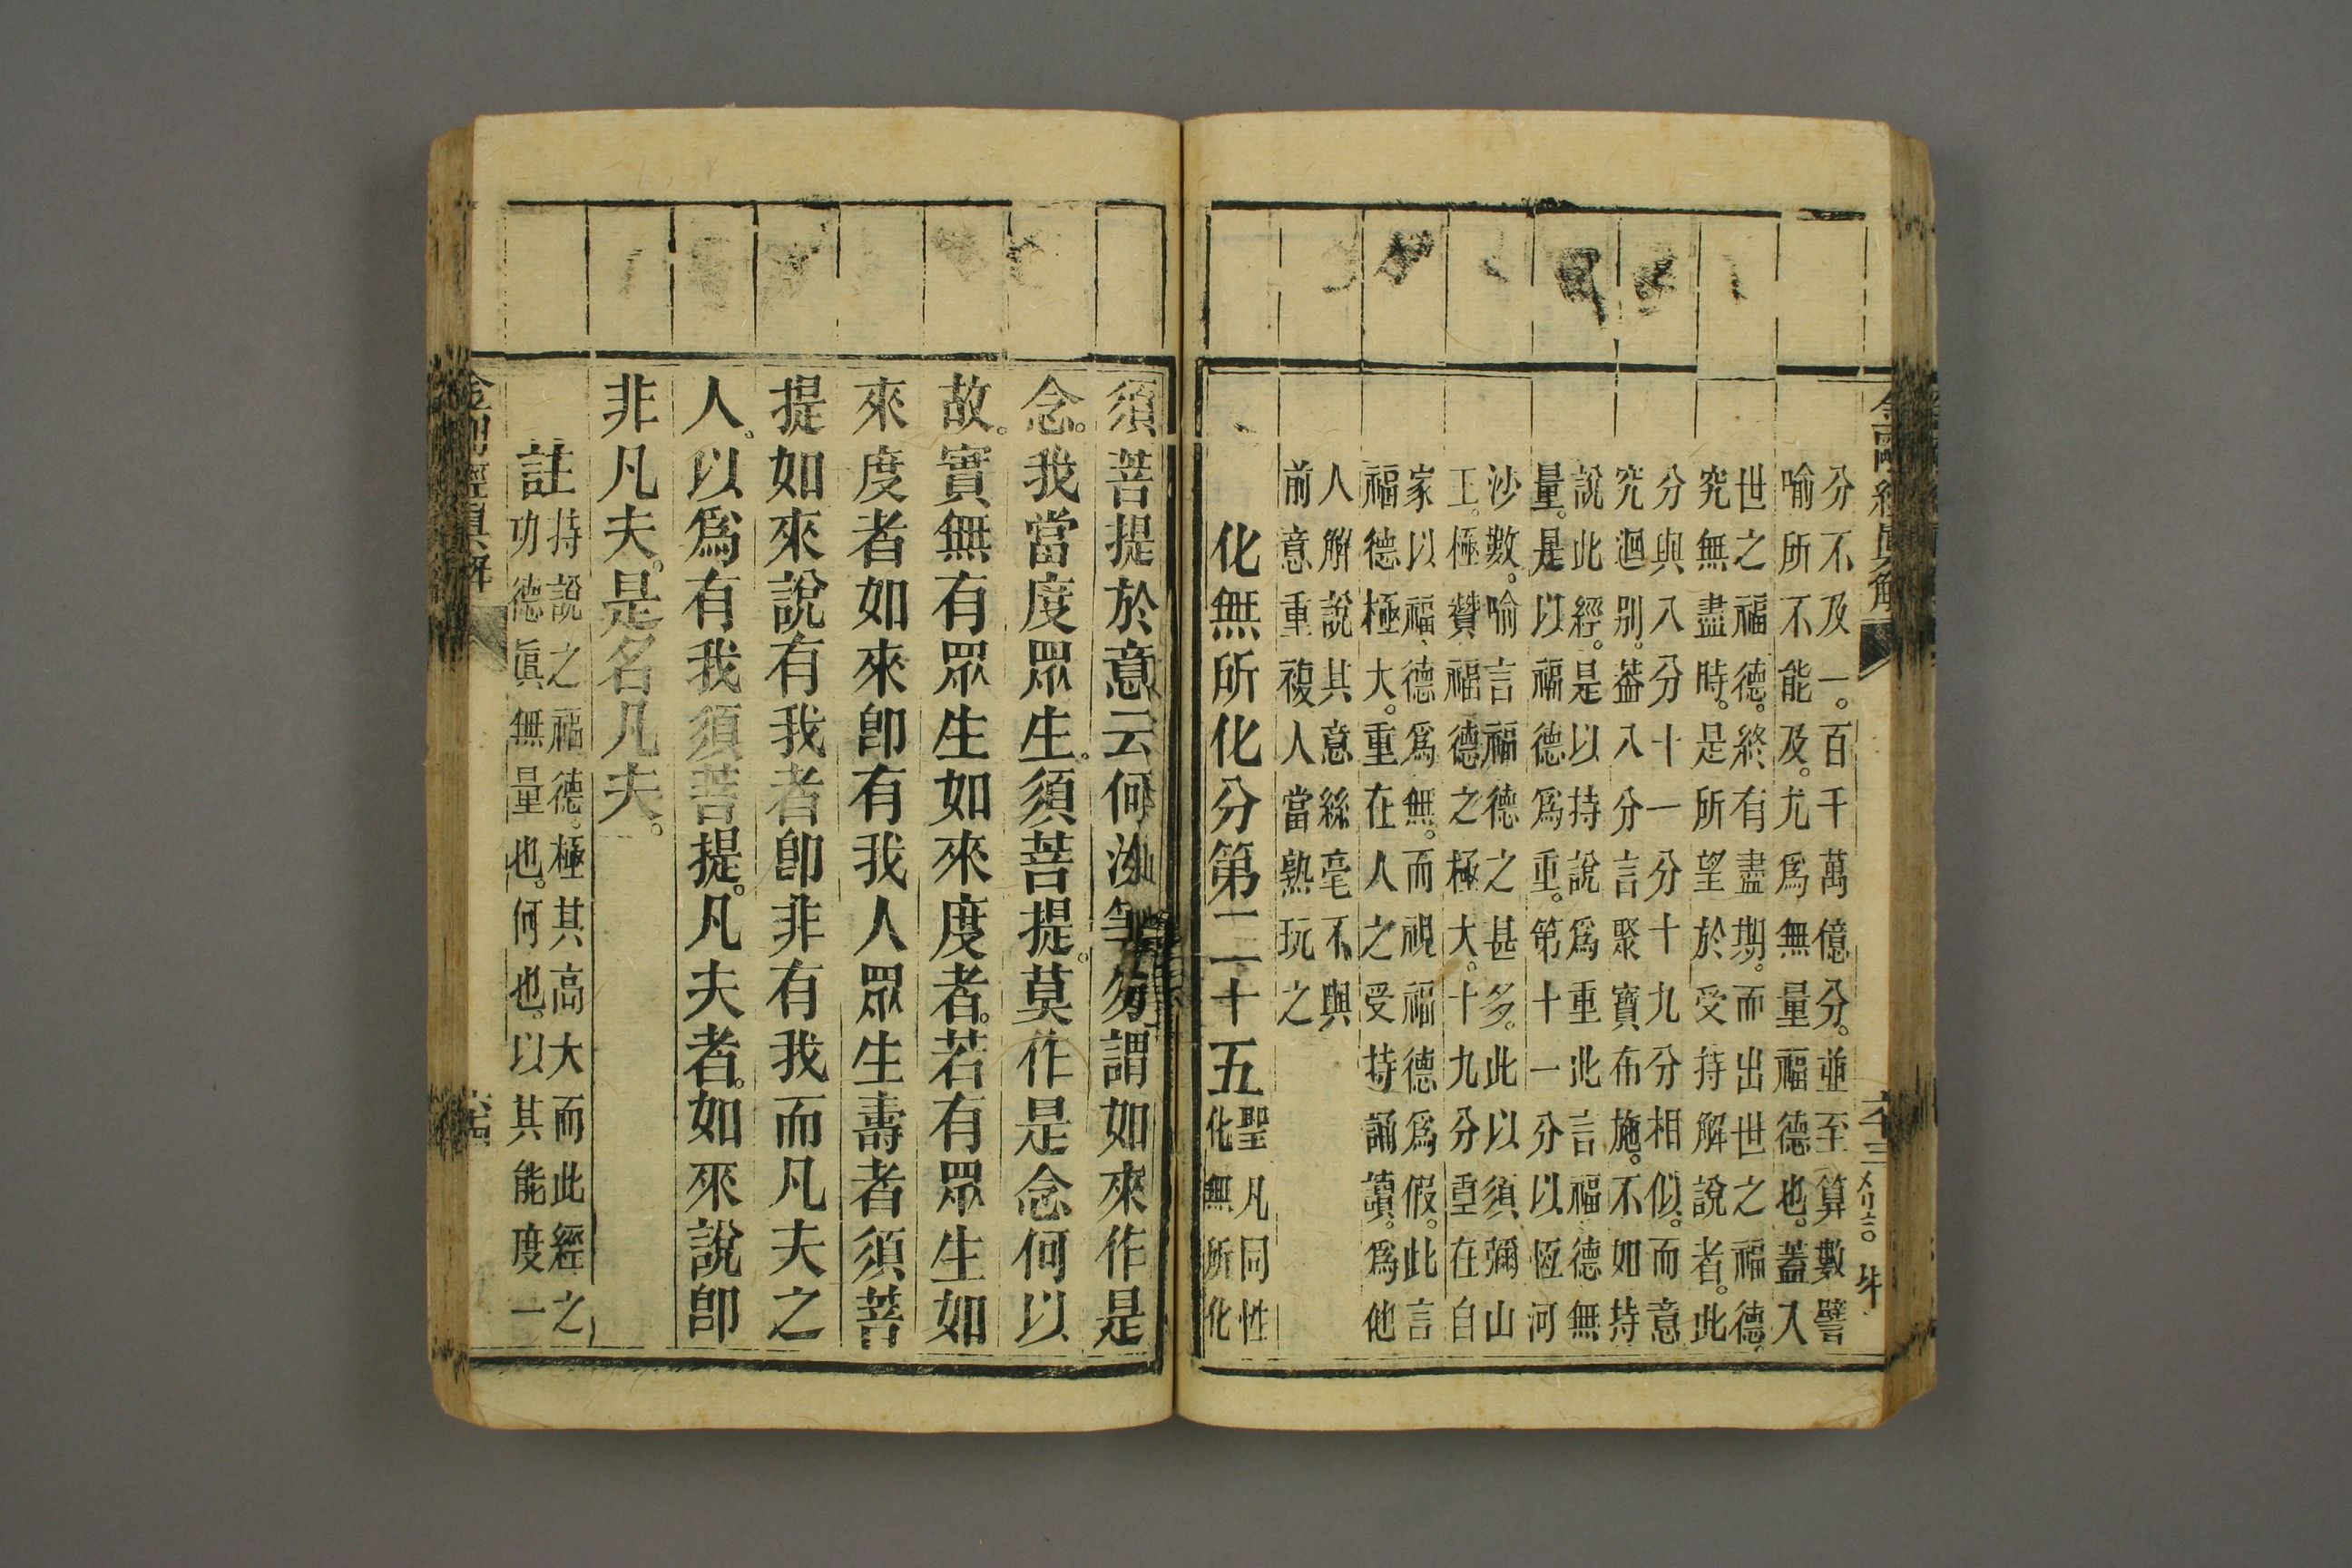 金剛經眞解
分不及一。百千萬億分。並至算數譬
喻所不能及。尤爲無量福德也。蓋入
世之福德。終有盡期。而出世之福德。
究無盡時。是所望於受持解說者。此
分與八分十一分十九分相似。而意
究迥别。葢八分言聚寶布施。不如持
說此經。是以持說爲重此言福德無
量。是以福德爲重。第十一分以恆河
沙數。喻言福德之甚多。此以須彌山
王。極贊福德之極大。十九分重在自
家以福德爲無。而視福德爲假。此言
福德極大。重在人之受持誦讀。爲他
人解說其意絲毫不與
前意重複人當熟玩之
化無所化分第二十五
聖凡同性
化無所化
須菩提於意云何汝等勿謂如來作是
念。我當度眾生。須菩提。莫作是念何以
故。實無有眾生如來度者。若有眾生如
來度者如來卽有我人眾生壽者須菩
提如來說有我者卽非有我而凡夫之
人。以爲有我須菩提。凡夫者。如來說卽
非凡夫。是名凡夫。
註
持說之福德。極其高大而此經之
功德眞無量也。何也。以其能度一
金剛經眞解